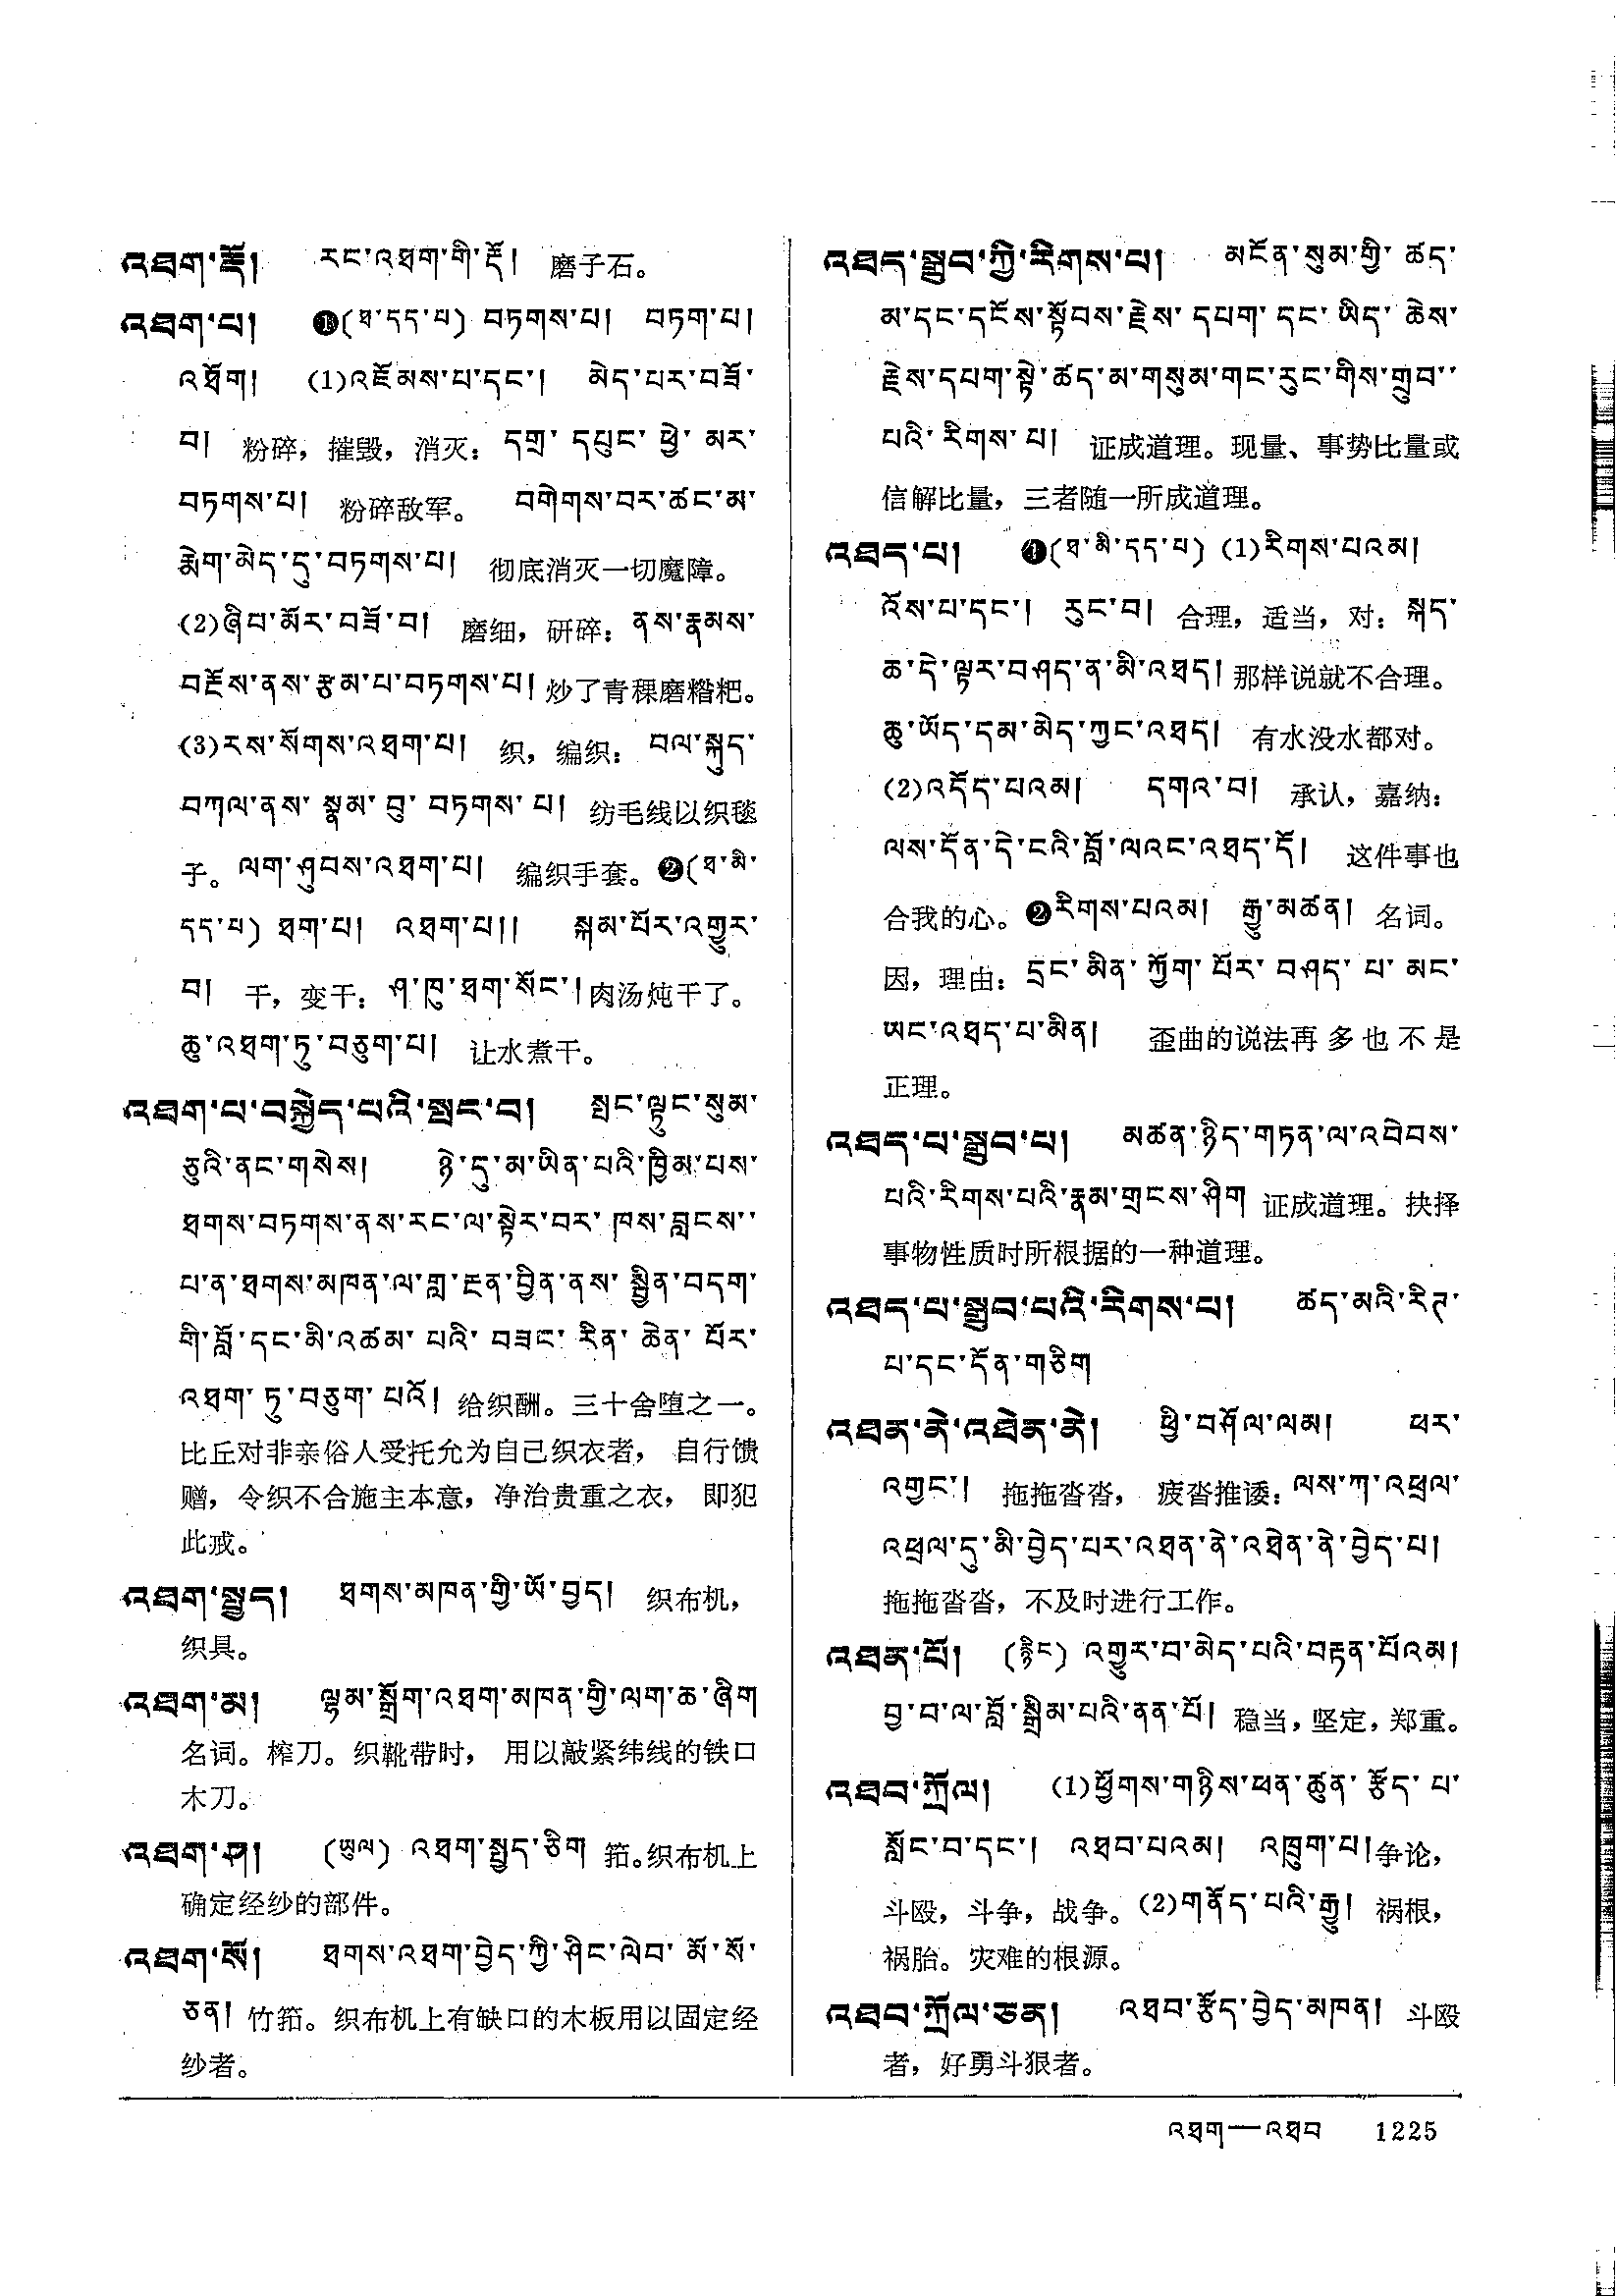 འཐག་རྡོ། རང་འཐག་གི་རྡོ། 磨子石。
འཐག་པ། ❶(ཐ་དད་པ) བཏགས་པ། བཏག་པ།
འཐོག། (1)འཇོམས་པ་དང་། མེད་པར་བཟོ་
བ། 粉碎，摧毁，消灭：དགྲ་ དཔུང་ ཕྱེ་ མར་
བཏགས་པ། 粉碎敌军。 བགེགས་བར་ཚང་མ་
རྨེག་མེད་དུ་བཏགས་པ། 彻底消灭一切魔障。
(2)ཞིབ་མོར་བཟོ་བ། 磨细，研碎：ནས་རྣམས་
བརྔོས་ནས་རྩམ་པ་བཏགས་པ། 炒了青稞磨糌粑。
(3)རས་སོགས་འཐག་པ། 织，编织：བལ་སྐུད་
བཀལ་ནས་ སྣམ་ བུ་ བཏགས་ པ། 纺毛线以织毯
子。ལག་ཤུབས་འཐག་པ། 编织手套。❷(ཐ་མི་
དད་པ) ཐག་པ། འཐག་པ།། སྐམ་པོར་འགྱུར་
བ། 干，变干：ཤ་ཁུ་ཐག་སོང་།肉汤炖干了。
ཆུ་འཐག་ཏུ་བཅུག་པ། 让水煮干。
འཐག་པ་བསྐྱེད་པའི་སྤང་བ། སྤང་ལྟུང་སུམ་
ཅུའི་ནང་གསེས། ཉེ་དུ་མ་ཡིན་པའི་ཁྱིམ་པས་
ཐགས་བཏགས་ནས་རང་ལ་སྟེར་བར་ ཁས་བླངས་
པ་ན་ཐགས་མཁན་ལ་གླ་རྔན་བྱིན་ནས་ སྦྱིན་བདག་
གི་བློ་དང་མི་འཚམ་ པའི་ བཟང་ རིན་ ཆེན་ པོར་
འཐག་ ཏུ་བཅུག་ པའོ། 给织酬。三十舍堕之一。
比丘对非亲俗人受托允为自己织衣者， 自行馈
赠，令织不合施主本意，净治贵重之衣， 即犯
此戒。
འཐག་སྤྱད། ཐགས་མཁན་གྱི་ཡོ་བྱད། 织布机，
织具。
འཐག་མ། ལྷམ་སྒྲོག་འཐག་མཁན་གྱི་ལག་ཆ་ཞིག
名词。榨刀。织靴带时， 用以敲紧纬线的铁口
木刀。
འཐག་ཤ། (ཡུལ) འཐག་སྤྱད་ཅིག 筘。织布机上
确定经纱的部件。
འཐག་སོ། ཐགས་འཐག་བྱེད་ཀྱི་ཤིང་ལེབ་ མོ་སོ་
ཅན། 竹筘。织布机上有缺口的木板用以固定经
纱者。
འཐད་སྒྲུབ་ཀྱི་རིགས་པ། མངོན་སུམ་གྱི་ ཚད་
མ་དང་དངོས་སྟོབས་རྗེས་ དཔག་ དང་ ཡིད་ ཆེས་
རྗེས་དཔག་སྟེ་ཚད་མ་གསུམ་གང་རུང་གིས་གྲུབ་
པའི་ རིགས་ པ། 证成道理。现量、事势比量或
信解比量，三者随一所成道理。
འཐད་པ། ❶(ཐ་མི་དད་པ) (1)རིགས་པའམ།
འོས་པ་དང་། རུང་བ། 合理，适当，对：སྐད་
ཆ་དེ་ལྟར་བཤད་ན་མི་འཐད། 那样说就不合理。
ཆུ་ཡོད་དམ་མེད་ཀྱང་འཐད། 有水没水都对。
(2)འདོད་པའམ། དགའ་བ། 承认，嘉纳：
ལས་དོན་དེ་ངའི་བློ་ལའང་འཐད་དོ། 这件事也
合我的心。❷རིགས་པའམ། རྒྱུ་མཚན། 名词。
因，理由：དྲང་མིན་ ཀྱོག་ པོར་ བཤད་ པ་ མང་
ཡང་འཐད་པ་མིན། 歪曲的说法再多也不是
正理。
འཐད་པ་སྒྲུབ་པ། མཚན་ཉིད་གཏན་ལ་འབེབས་
པའི་རིགས་པའི་རྣམ་གྲངས་ཤིག 证成道理。抉择
事物性质时所根据的一种道理。
འཐད་པ་སྒྲུབ་པའི་རིགས་པ། ཚད་མའི་རིཊ་
པ་དང་དོན་གཅིག
འཐན་ནེ་འཐེན་ནེ། ཕྱི་བཤོལ་ལམ། ཕར་
འགྱང་། 拖拖沓沓， 疲沓推诿：ལས་ཀ་འཕྲལ་
འཕྲལ་དུ་མི་བྱེད་པར་འཐན་ནེ་འཐེན་ནེ་བྱེད་པ།
拖拖沓沓，不及时进行工作。
འཐན་པོ། (རྙིང) འགྱུར་བ་མེད་པའི་བརྟན་པོའམ།
བྱ་བ་ལ་བློ་སྒྲིམ་པའི་ནན་པོ། 稳当，坚定，郑重。
འཐབ་ཀྲོལ། (1)ཕྱོགས་གཉིས་ཕན་ཚུན་ རྩོད་ པ་
སློང་བ་དང་། འཐབ་པའམ། འཁྲུག་པ།争论，
斗殴，斗争，战争。(2)གནོད་པའི་རྒྱུ། 祸根，
祸胎。灾难的根源。
འཐབ་ཀྲོལ་ཅན། འཐབ་རྩོད་བྱེད་མཁན། 斗殴
者，好勇斗狠者。
འཐག—འཐབ 1225